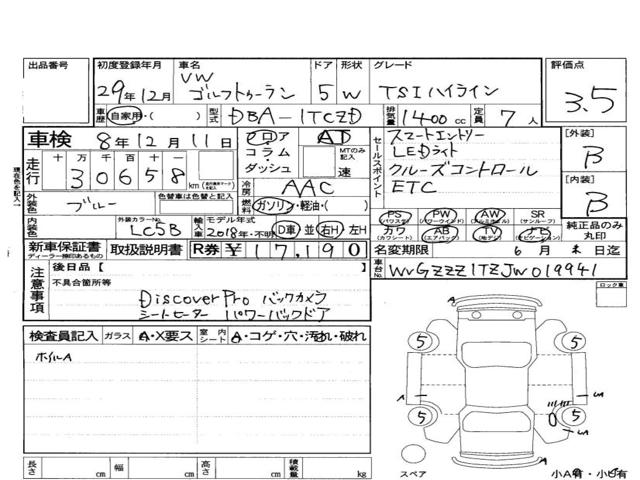 出品番号 初度登録年月 車名 ドア 形状 グレード 評価点
29年12月 VW ゴルフトゥーラン 5 W TSIハイライン 3.5
車歴 自家用・( ) 型式 DBA-1TCZD 排気量 1400cc 定員 7人
車検 8年12月11日 フロア AT スマートエントリー [外装]
走行 十 万 千 百 十 コラム・ダッシュ MTのみ記入 速 セールスポイント LEDライト B
30658 km クルーズコントロール
冷房 AAC ETC [内装]
外装色 ブルー 色替車は色替と記入 燃料 ガソリン・軽油・( ) B
現在色を記入
PS PW AW SR 純正品のみ丸印
(パワステ) (パワーウィンド) (アルミホイル) (サンルーフ)
内装色 外装カラーNo. LC5B 輸入車記入 モデル年式 2018年・不明 D車 並 右H 左H カワ AB TV ナビ
(カワシート) (エアバック) (テレビ) (ナビゲーション)
新車保証書 取扱説明書 R券 ¥17,190 名変期限 6月末日迄
ディーラー検印あるもの
注意事項 後日品【 】 車台No. WVGZZZ1TZJW019941
不具合箇所等 ロック車
Discover Pro バックカメラ
シートヒーター パワーバックドア
検査員記入 ガラス A・X要ス 室内シート A・コゲ・穴・汚れ・破れ
ホイルA
5 5
A
5 5
A
長さ cm 幅 cm 高さ cm 積載量 kg スペア 小A有・小ヒ有